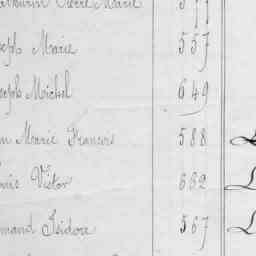 Pierre Marie
Joseph Marie 557
Joseph Michel 649
Marie François 588
Louis Victor 662
Armand Isidore 567